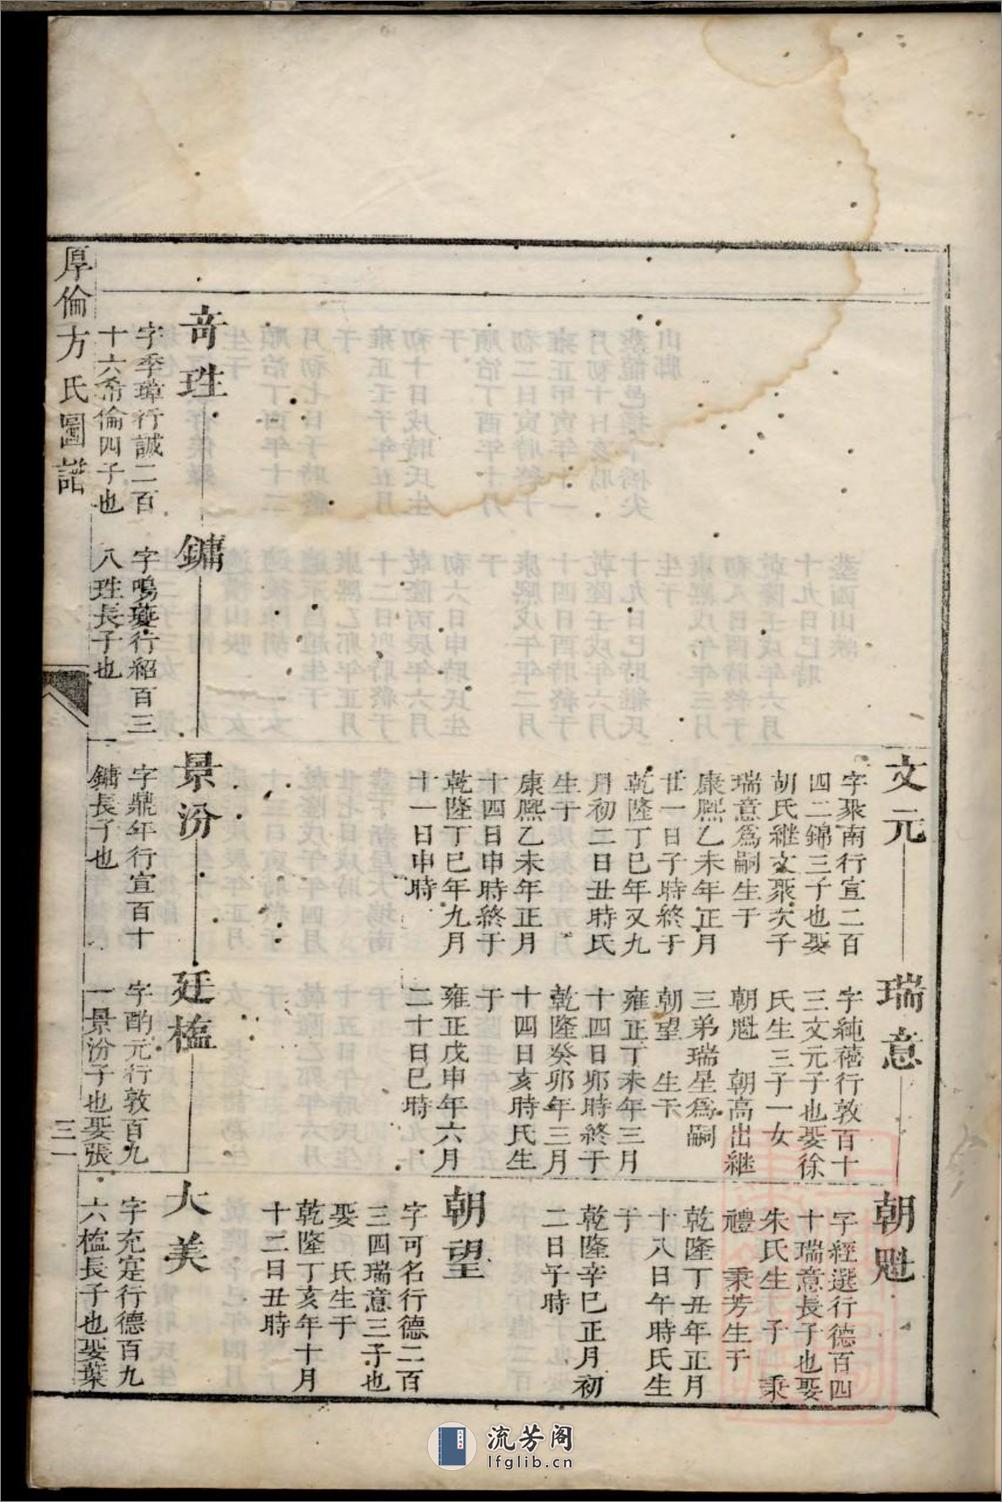 文元
字聚南行宣二百
四二錦三子也娶
胡氏継文聚次子
瑞意爲嗣生于
康熙乙未年正月
廿一日子時終于
乾隆丁巳年又九
月初二日丑時氏
生于
康熙乙未年正月
十四日申時終于
乾隆丁巳年九月
十一日申時
瑞意
字純蓓行敦百十
三文元子也娶徐
氏生三子一女
朝魁 朝高出継
三弟瑞星爲嗣
朝望 生于
雍正丁未年三月
十四日卯時終于
乾隆癸卯年三月
十四日亥時氏生
于
雍正戊申年六月
二十日巳時
朝魁
字經選行德百四
十瑞意長子也娶
朱氏生二子 秉
禮 秉芳生于
乾隆丁丑年正月
十八日午時氏生
于
乾隆辛巳正月初
二日子時
朝望
字可名行德二百
三四瑞意三子也
娶 氏生于
乾隆丁亥年十月
十二日丑時
奇珄
字季璋行誠二百
十六希倫四子也
鏞
字鳴蘷行紹百三
八珄長子也
景汾
字鼎年行宣百十
鏞長子也
廷楹
字酌元行敦百九
一景汾子也娶張
大美
字充寔行德百九
六楹長子也娶葉
厚倫方氏圖譜
三一
流芳阁
lfglib.cn